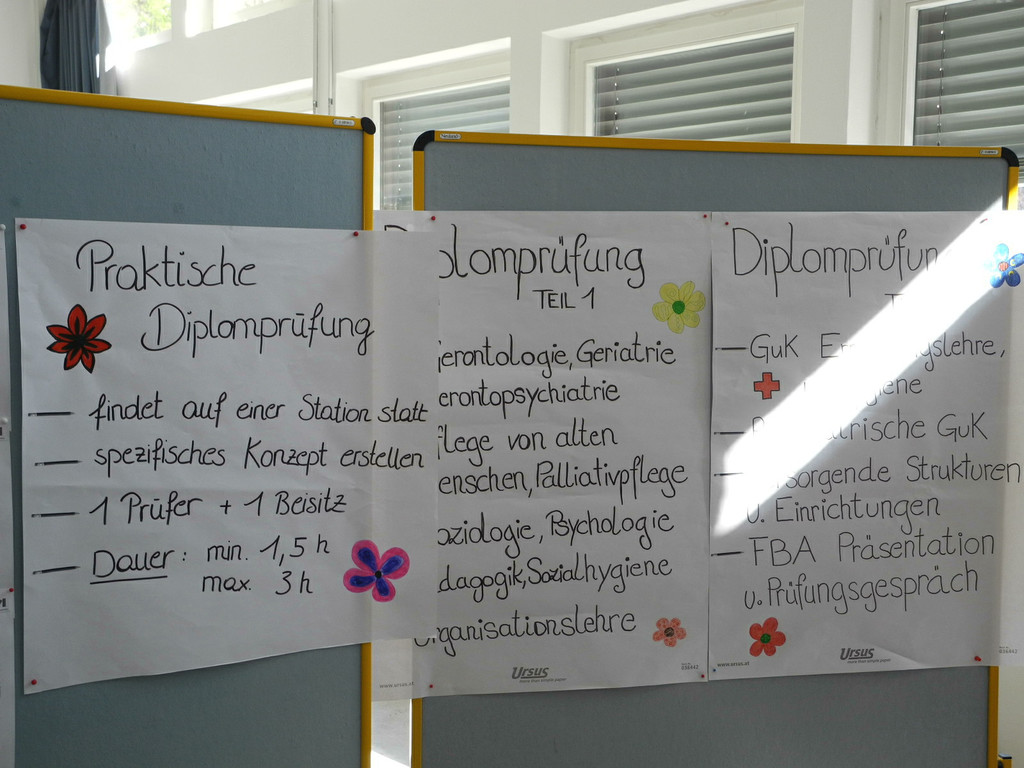 Praktische
Diplomprüfung
findet auf einer Station statt
spezifisches Konzept erstellen
1 Prüfer + 1 Beisitz
Dauer: min. 1,5 h
max. 3 h
plomprüfung
TEIL 1
erontologie, Geriatrie
erontopsychiatrie
flege von alten
enschen, Palliativpflege
oziologie, Psychologie
dagogik, Sozialhygiene
Organisationslehre
www.ursus.at
URSUS
Diplomprüfun
T
GuK
slehre,
iene
rische GuK
sorgende Strukturen
u. Einrichtungen
FBA Präsentation
u. Prüfungsgespräch
www.ursus.at
URSUS